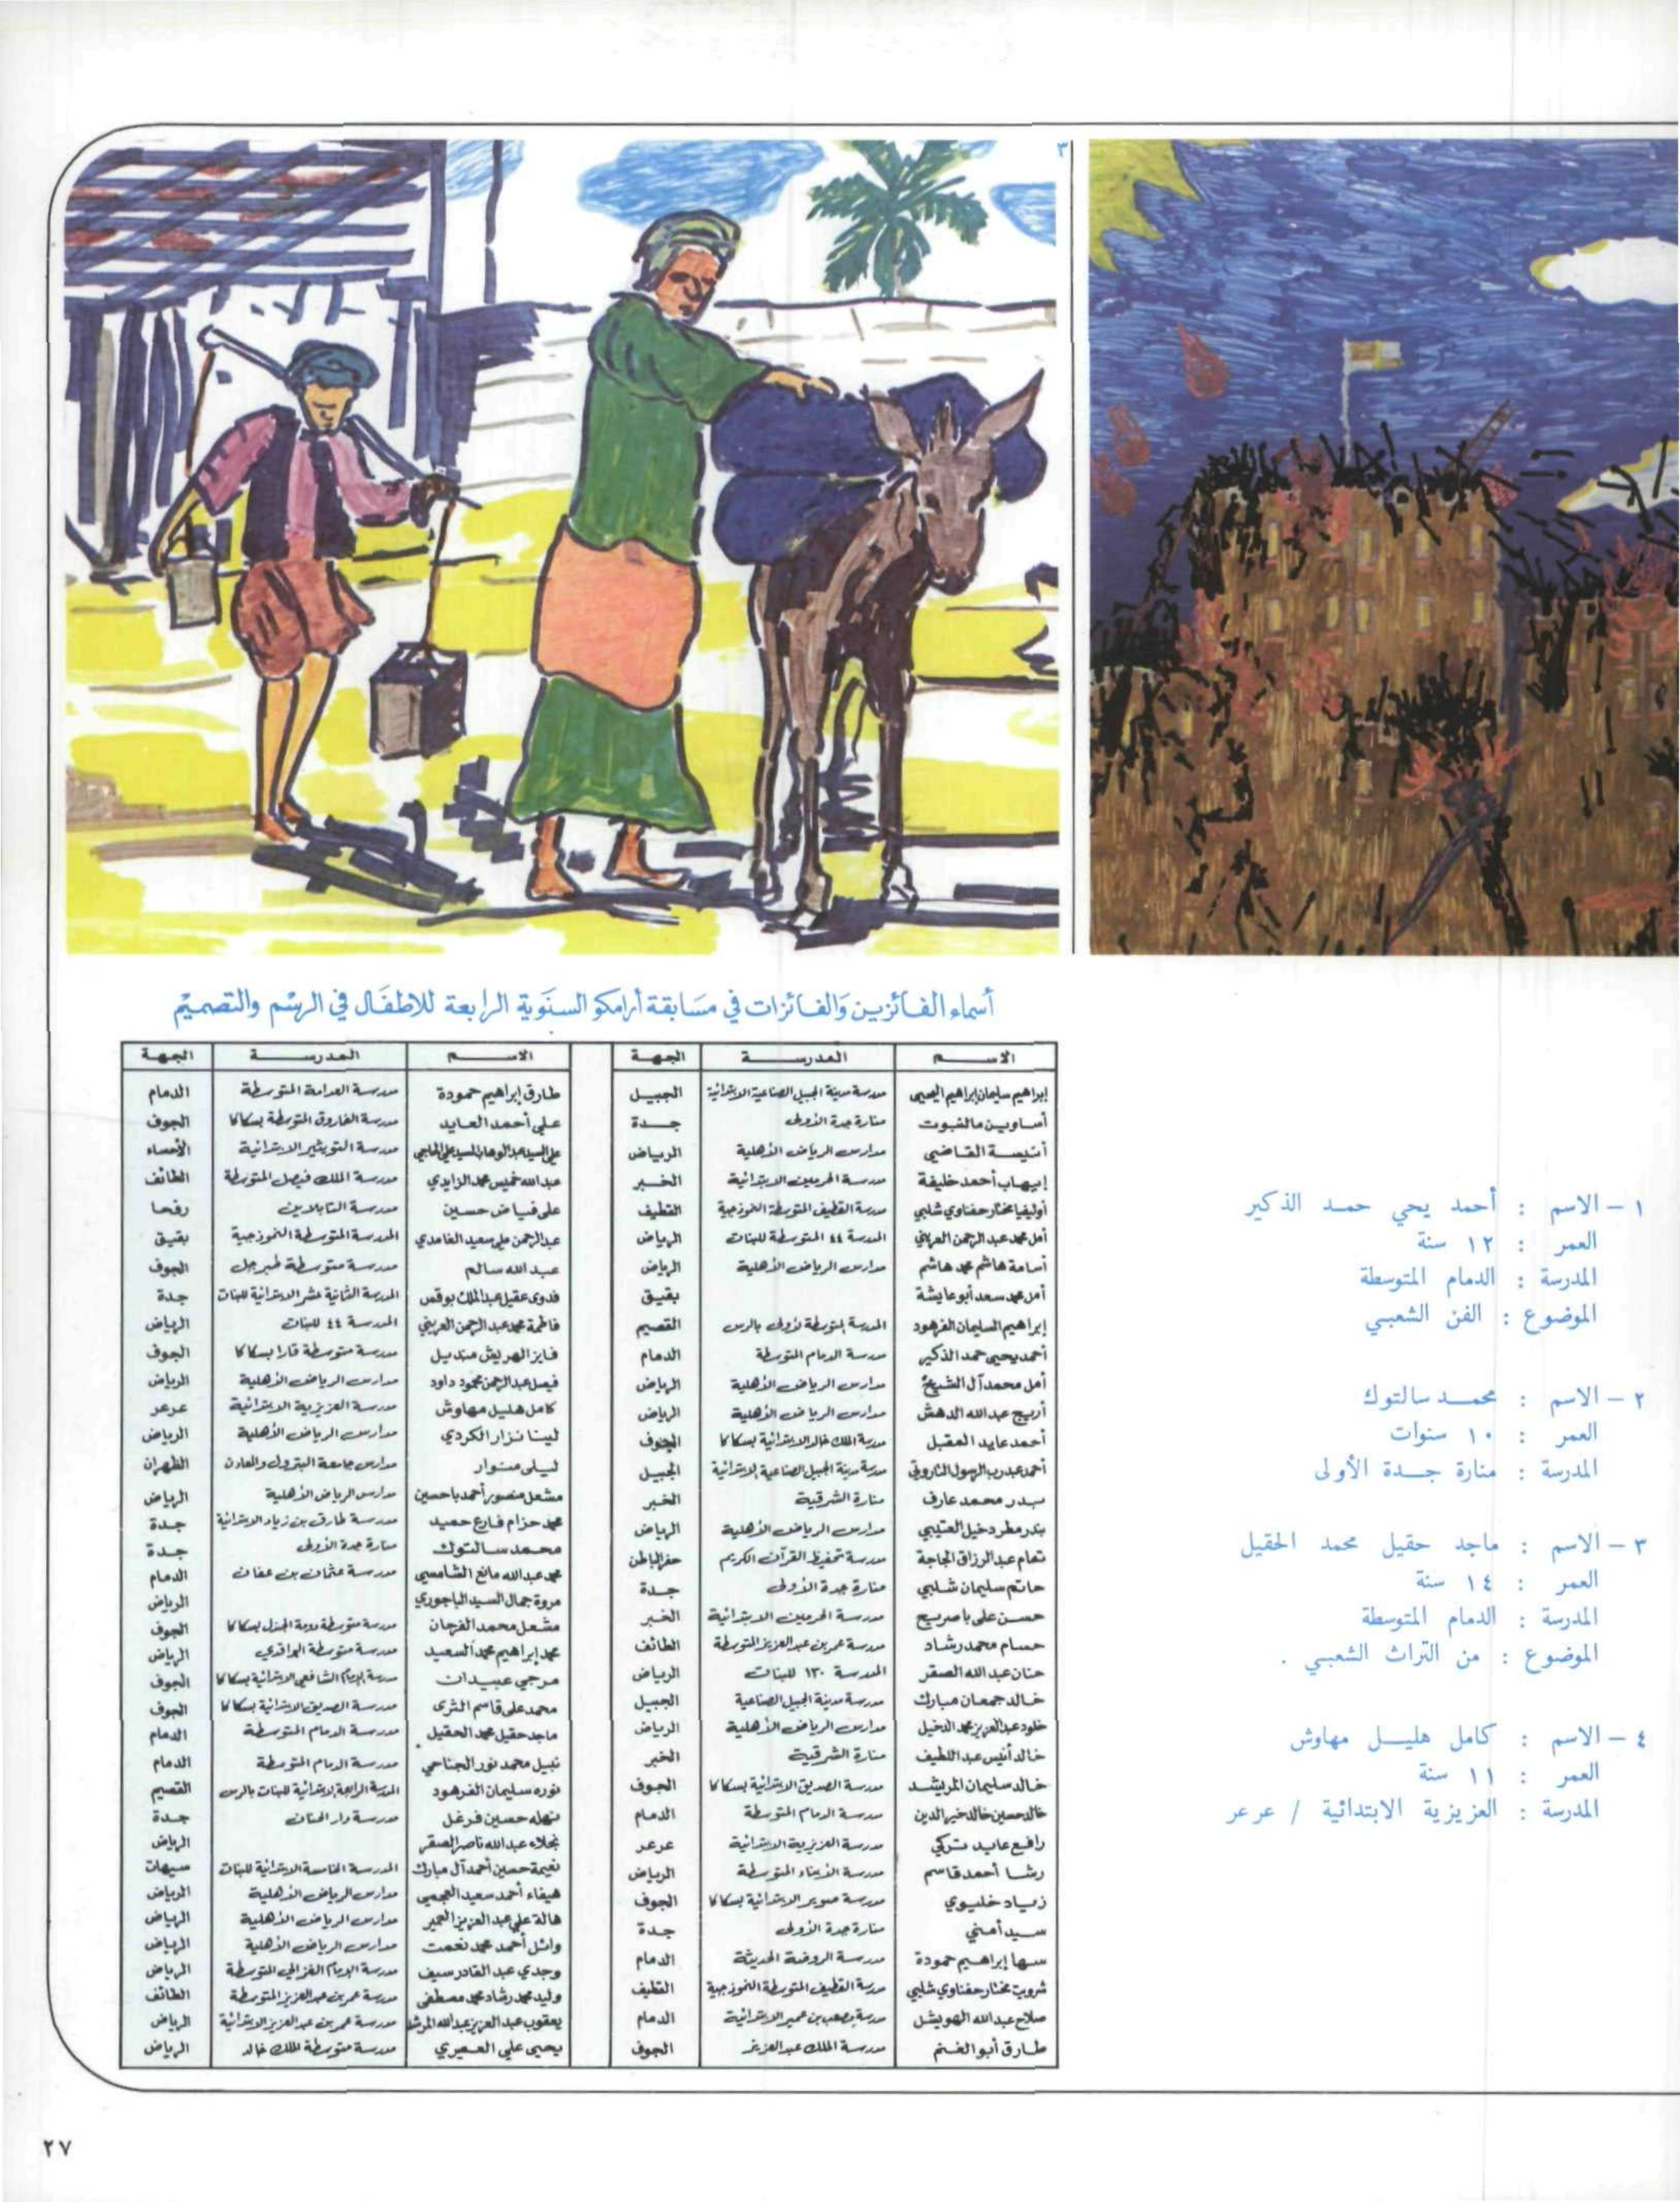 ٣
١ – الاسم : أحمد يحي حمد الذكير
العمر : ١٢ سنة
المدرسة : الدمام المتوسطة
الموضوع : الفن الشعبي
٢ – الاسم : محمد سالتوك
العمر : ١٠ سنوات
المدرسة : منارة جدة الأولى
٣ – الاسم : ماجد حقيل محمد الحقيل
العمر : ١٤ سنة
المدرسة : الدمام المتوسطة
الموضوع : من التراث الشعبي .
٤ – الاسم : كامل هليل مهاوش
العمر : ١١ سنة
المدرسة : العزيزية الابتدائية / عرعر
أسماء الفائزين والفائزات في مسابقة أرامكو السنوية الرابعة للاطفال في الرسم والتصميم
الاسم المدرسة الجهة
إبراهيم سليمان إبراهيم اليحيى مدرسة مدينة الجبيل الصناعية الابتدائية الجبيل
منارة جدة الأولى جدة
أنيسة القاضي مدارس الرياض الأهلية الرياض
إيهاب أحمد خليفة مدرسة الحرمين الابتدائية الخبر
أوليفيا مختار حفناوي شلبي مدرسة القطيف المتوسطة النموذجية القطيف
أمل محمد عبد الرحمن العريني المدرسة ٤٤ المتوسطة للبنات الرياض
أسامة هاشم محمد هاشم مدارس الرياض الأهلية الرياض
أمل محمد سعد أبو عايشة بقيق
إبراهيم السليمان الفرهود المدرسة المتوسطة الأولى بالرس القصيم
أحمد يحيى حمد الذكير مدرسة الدمام المتوسطة الدمام
أمل محمد آل الشيخ مدارس الرياض الأهلية الرياض
أريج عبد الله الدهش مدارس الرياض الأهلية الرياض
أحمد عايد العقيل مدرسة الملك خالد الابتدائية بسكاكا الجوف
أحمد عبد رب الرسول التاروتي مدرسة مدينة الجبيل الصناعية الابتدائية الجبيل
بدر محمد عارف منارة الشرقية الخبر
بندر مطر دخيل العتيبي مدارس الرياض الأهلية الرياض
تمام عبد الرزاق الجاجة مدرسة تحفيظ القرآن الكريم حفر الباطن
حاتم سليمان شلبي منارة جدة الأولى جدة
حسن علي باصريح مدرسة الحرمين الابتدائية الخبر
حسام محمد رشاد مدرسة عمر بن عبد العزيز المتوسطة الطائف
حنان عبد الله الصقر المدرسة ١٣٠ للبنات الرياض
خالد جمعان مبارك مدرسة مدينة الجبيل الصناعية الجبيل
خلود عبد العزيز محمد الدخيل مدارس الرياض الأهلية الرياض
خالد أنيس عبد اللطيف منارة الشرقية الخبر
خالد سليمان المريشد مدرسة الصديق الابتدائية بسكاكا الجوف
خالد حسين خالد خير الدين مدرسة الدمام المتوسطة الدمام
رافع عايد تركي مدرسة العزيزية الابتدائية عرعر
رشا أحمد قاسم مدرسة الأبناء المتوسطة الرياض
زياد خليوي مدرسة صوير الابتدائية بسكاكا الجوف
سيد أمني منارة جدة الأولى جدة
سها إبراهيم حمودة مدرسة الروضة الحديثة الدمام
شرويت مختار حفناوي شلبي مدرسة القطيف المتوسطة النموذجية القطيف
صلاح عبد الله الهويشل مدرسة مصعب بن عمير الابتدائية الدمام
طارق أبو الغنم مدرسة الملك عبد العزيز الجوف
الاسم المدرسة الجهة
طارق إبراهيم حمودة مدرسة العدامة المتوسطة الدمام
علي أحمد العايد مدرسة الفاروق المتوسطة بسكاكا الجوف
مدرسة التويثير الابتدائية الأحساء
عبد الله خميس محمد الزايدي مدرسة الملك فيصل المتوسطة الطائف
علي فياض حسين مدرسة التابلاين رفحا
عبد الرحمن علي سعيد الغامدي المدرسة المتوسطة النموذجية بقيق
عبد الله سالم مدرسة متوسطة طبرجل الجوف
فدوى عقيل عبد الملك بوقس المدرسة الثانية عشر الابتدائية للبنات جدة
فاطمة محمد عبد الرحمن العريني المدرسة ٤٤ للبنات الرياض
فايز الهريش منديل مدرسة متوسطة قارا بسكاكا الجوف
فيصل عبد الرحمن محمود داود مدارس الرياض الأهلية الرياض
كامل هليل مهاوش مدرسة العزيزية الابتدائية عرعر
لينا نزار الكردي مدارس الرياض الأهلية الرياض
ليلى منوار مدارس جامعة البترول والمعادن الظهران
مشعل منصور أحمد باحسين مدارس الرياض الأهلية الرياض
محمد حزام فارع حميد مدرسة طارق بن زياد الابتدائية جدة
محمد سالتوك منارة جدة الأولى جدة
محمد عبد الله مانع الشامسي مدرسة عثمان بن عفان الدمام
مروة جمال السيد الباجوري الرياض
مشعل محمد الفرحان مدرسة متوسطة دومة الجندل بسكاكا الجوف
محمد إبراهيم محمد السعيد مدرسة متوسطة الواقدي الرياض
مرجي عبيدان مدرسة الإمام الشافعي الابتدائية بسكاكا الجوف
محمد علي قاسم الثرى مدرسة الصديق الابتدائية بسكاكا الجوف
ماجد حقيل محمد الحقيل مدرسة الدمام المتوسطة الدمام
نبيل محمد نور الجناحي مدرسة الدمام المتوسطة الدمام
نوره سليمان الفرهود المدرسة الرابعة الابتدائية للبنات بالرس القصيم
نهله حسين فرغل مدرسة دار الحنان جدة
نجلاء عبد الله ناصر الصقر الرياض
نعيمة حسين أحمد آل مبارك المدرسة الخامسة الابتدائية للبنات سيهات
هيفاء أحمد سعيد العجمي مدارس الرياض الأهلية الرياض
هالة علي عبد العزيز العمير مدارس الرياض الأهلية الرياض
وائل أحمد محمد نعمت مدارس الرياض الأهلية الرياض
وجدي عبد القادر سيف مدرسة الإمام الغزالي المتوسطة الرياض
وليد محمد رشاد محمد مصطفى مدرسة عمر بن عبد العزيز المتوسطة الطائف
يعقوب عبد العزيز عبد الله المرشد مدرسة عمر بن عبد العزيز الابتدائية الرياض
يحيى علي العميري مدرسة متوسطة الملك خالد الرياض
٢٧